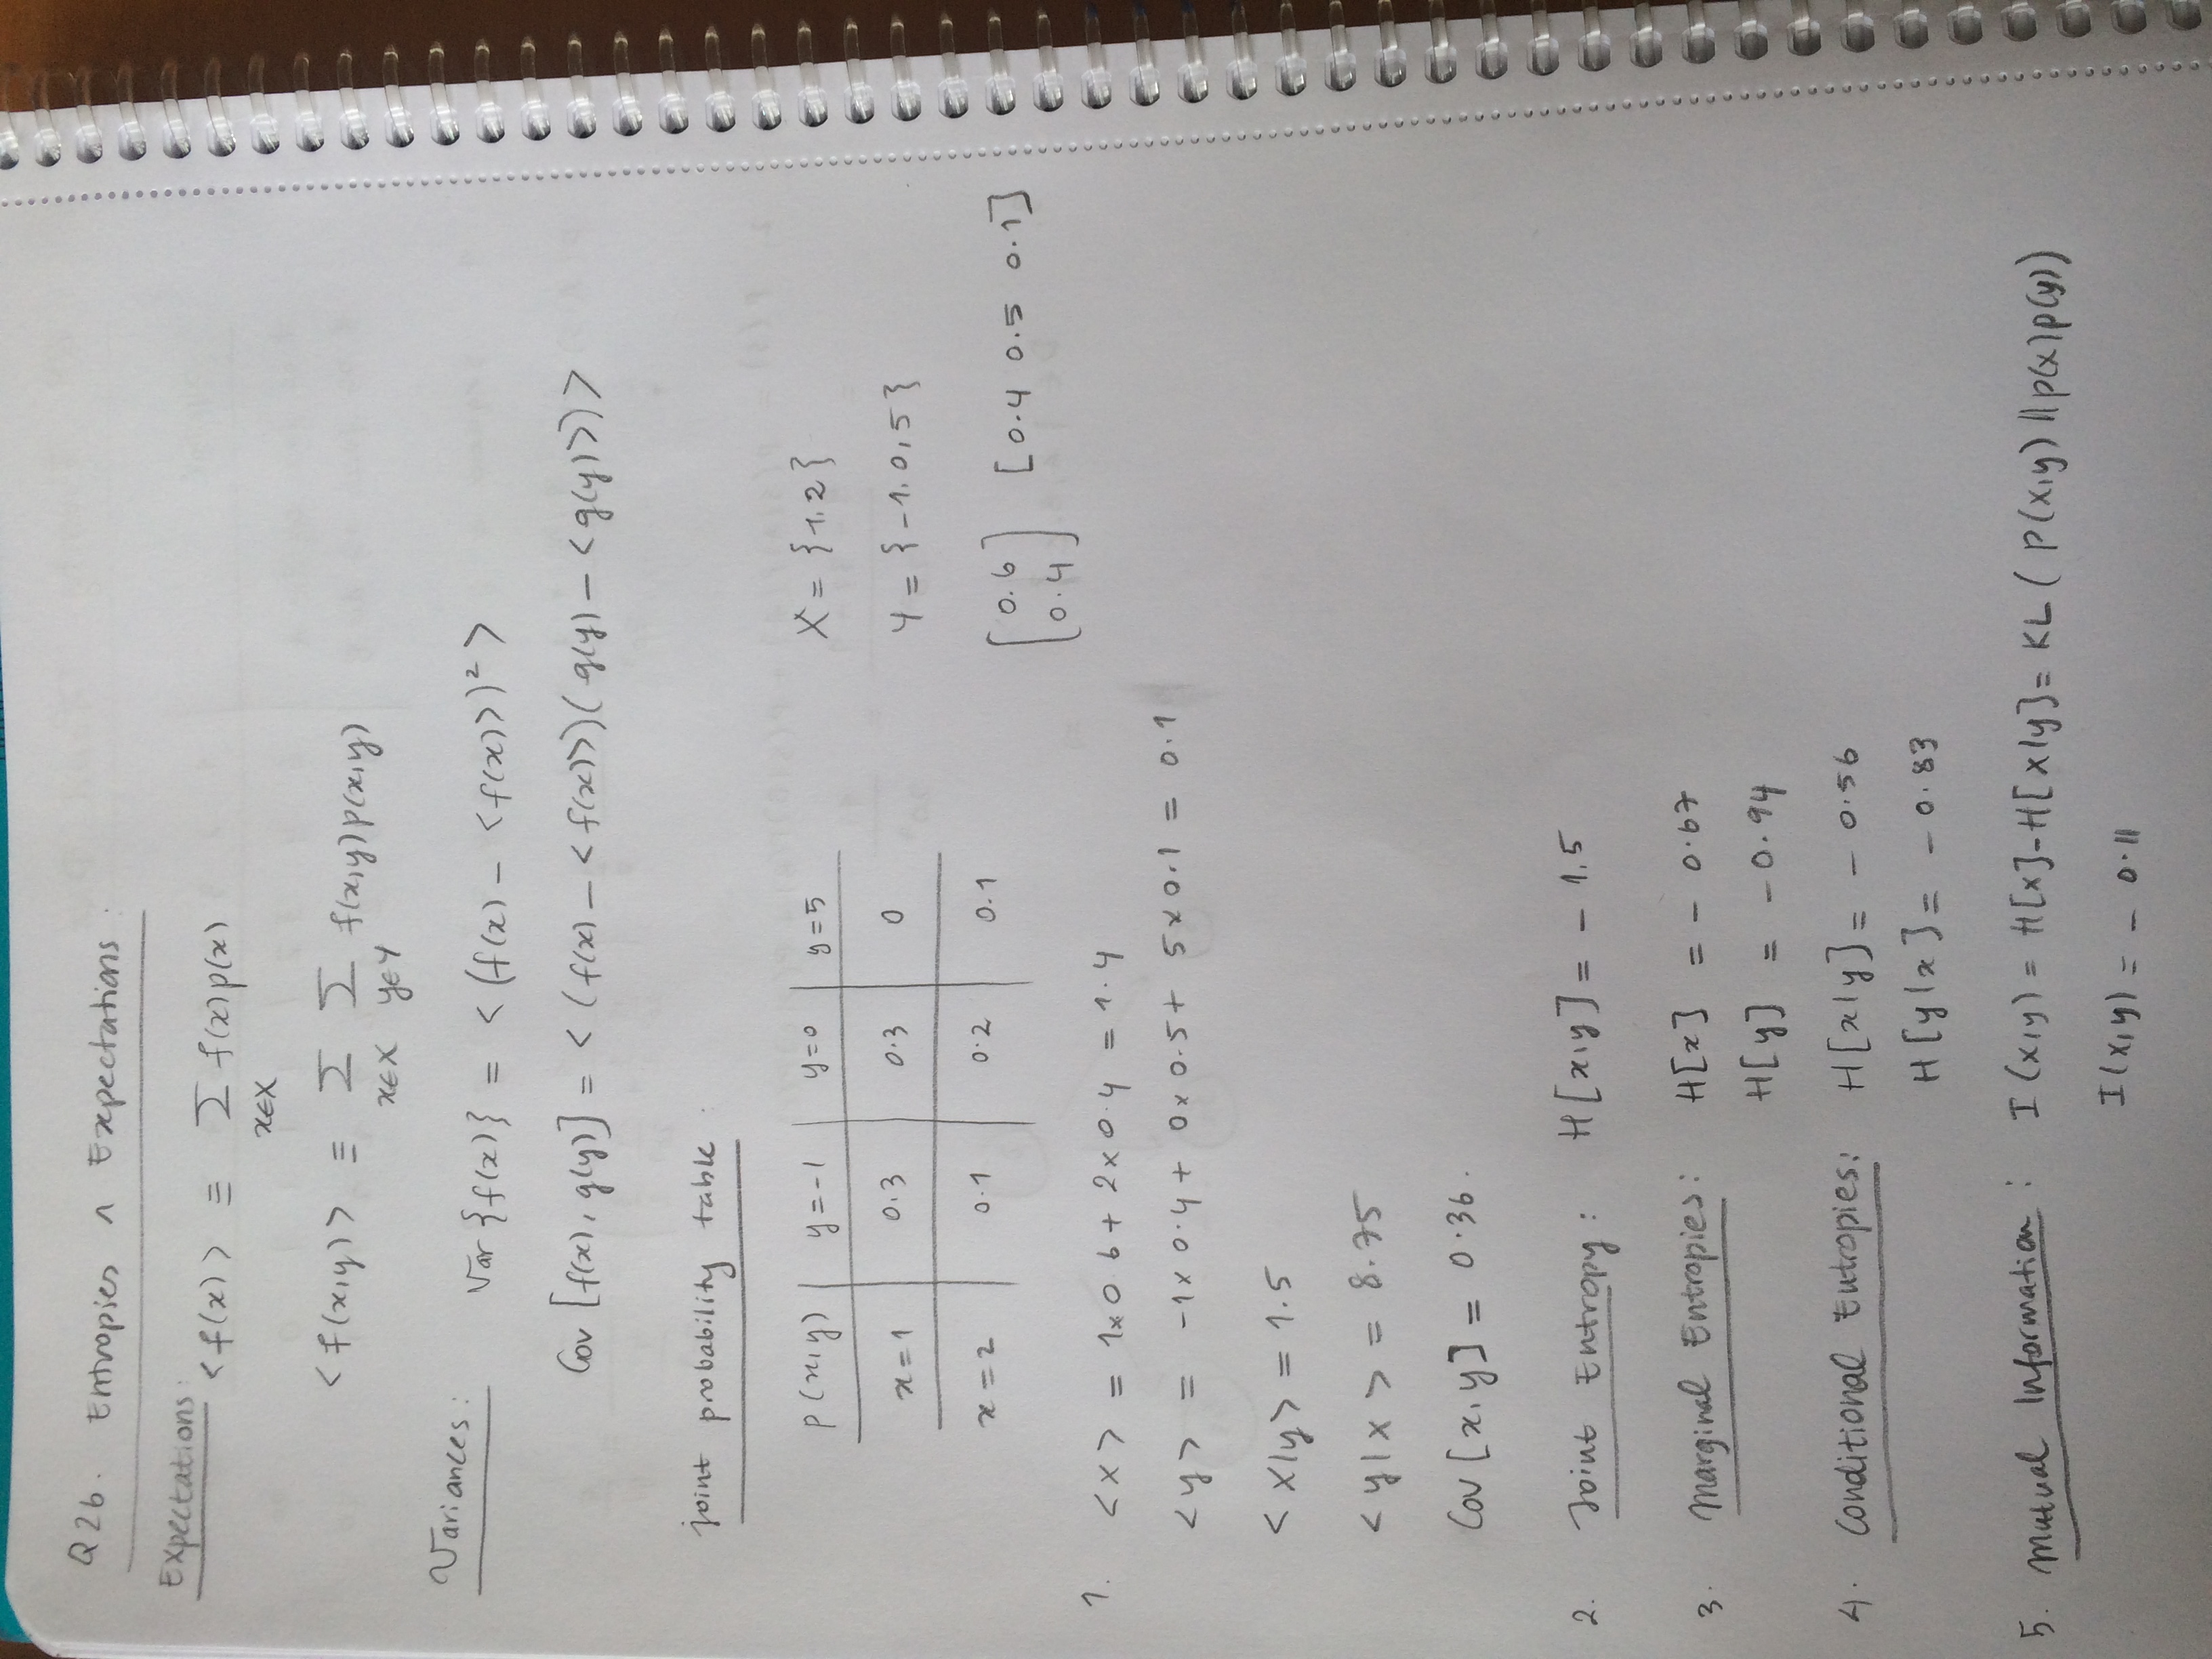 Q2b. Entropies ∧ Expectations.
Expectations:
<f(x)> ≡ Σ f(x)p(x)
x∈X
<f(x,y)> ≡ Σ Σ f(x,y)p(x,y)
x∈X y∈Y
Variances:
Var {f(x)} = <(f(x) - <f(x)>)²>
Cov [f(x), g(y)] = <(f(x) - <f(x)>)(g(y) - <g(y)>)>
joint probability table
p(x,y) y=-1 y=0 y=5
x=1 0.3 0.3 0
x=2 0.1 0.2 0.1
X = {1,2}
Y = {-1,0,5}
[0.6 0.4] [0.4 0.5 0.1]
1. <x> = 1x0.6+ 2x0.4 = 1.4
<y> = -1x0.4+ 0x0.5+ 5x0.1 = 0.1
<x|y> = 1.5
<y|x> = 8.75
Cov [x,y] = 0.36.
2. Joint Entropy: H[x,y] = - 1.5
3. Marginal Entropies: H[x] = - 0.67
H[y] = - 0.94
4. Conditional Eutropies: H[x|y] = - 0.56
H[y|x] = - 0.83
5. Mutual Information: I(x,y) = H[x]-H[x|y] = KL (P(x,y) || p(x)p(y))
I(x,y) = - 0.11